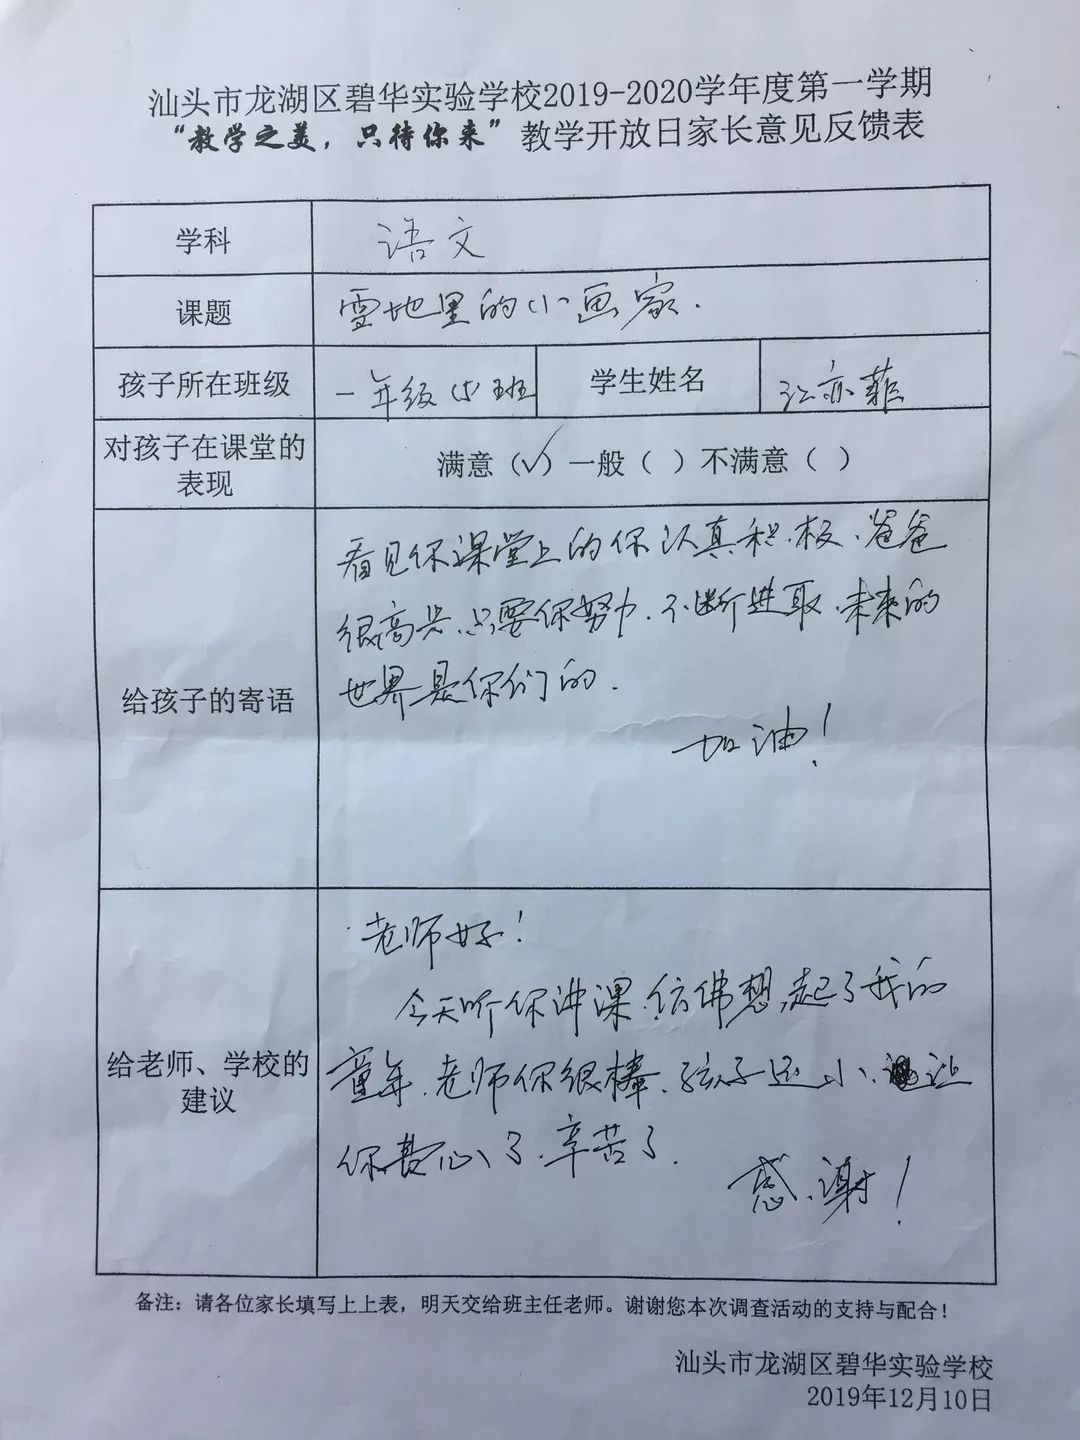 汕头市龙湖区碧华实验学校2019-2020学年度第一学期
“教学之美，只待你来”教学开放日家长意见反馈表
学科 语文
课题 雪地里的小画家.
孩子所在班级 一年级(5)班 学生姓名 江亦菲
对孩子在课堂的
表现
满意（√）一般（ ）不满意（ ）
给孩子的寄语
看见你课堂上的你认真积极、爸爸
很高兴.只要你努力.不断进取.未来的
世界是你们的.
加油！
给老师、学校的
建议
老师好！
今天听你讲课.仿佛想起了我的
童年.老师你很棒.孩子还小.让
你费心了.辛苦了.
感谢！
备注：请各位家长填写上上表，明天交给班主任老师。谢谢您本次调查活动的支持与配合！
汕头市龙湖区碧华实验学校
2019年12月10日